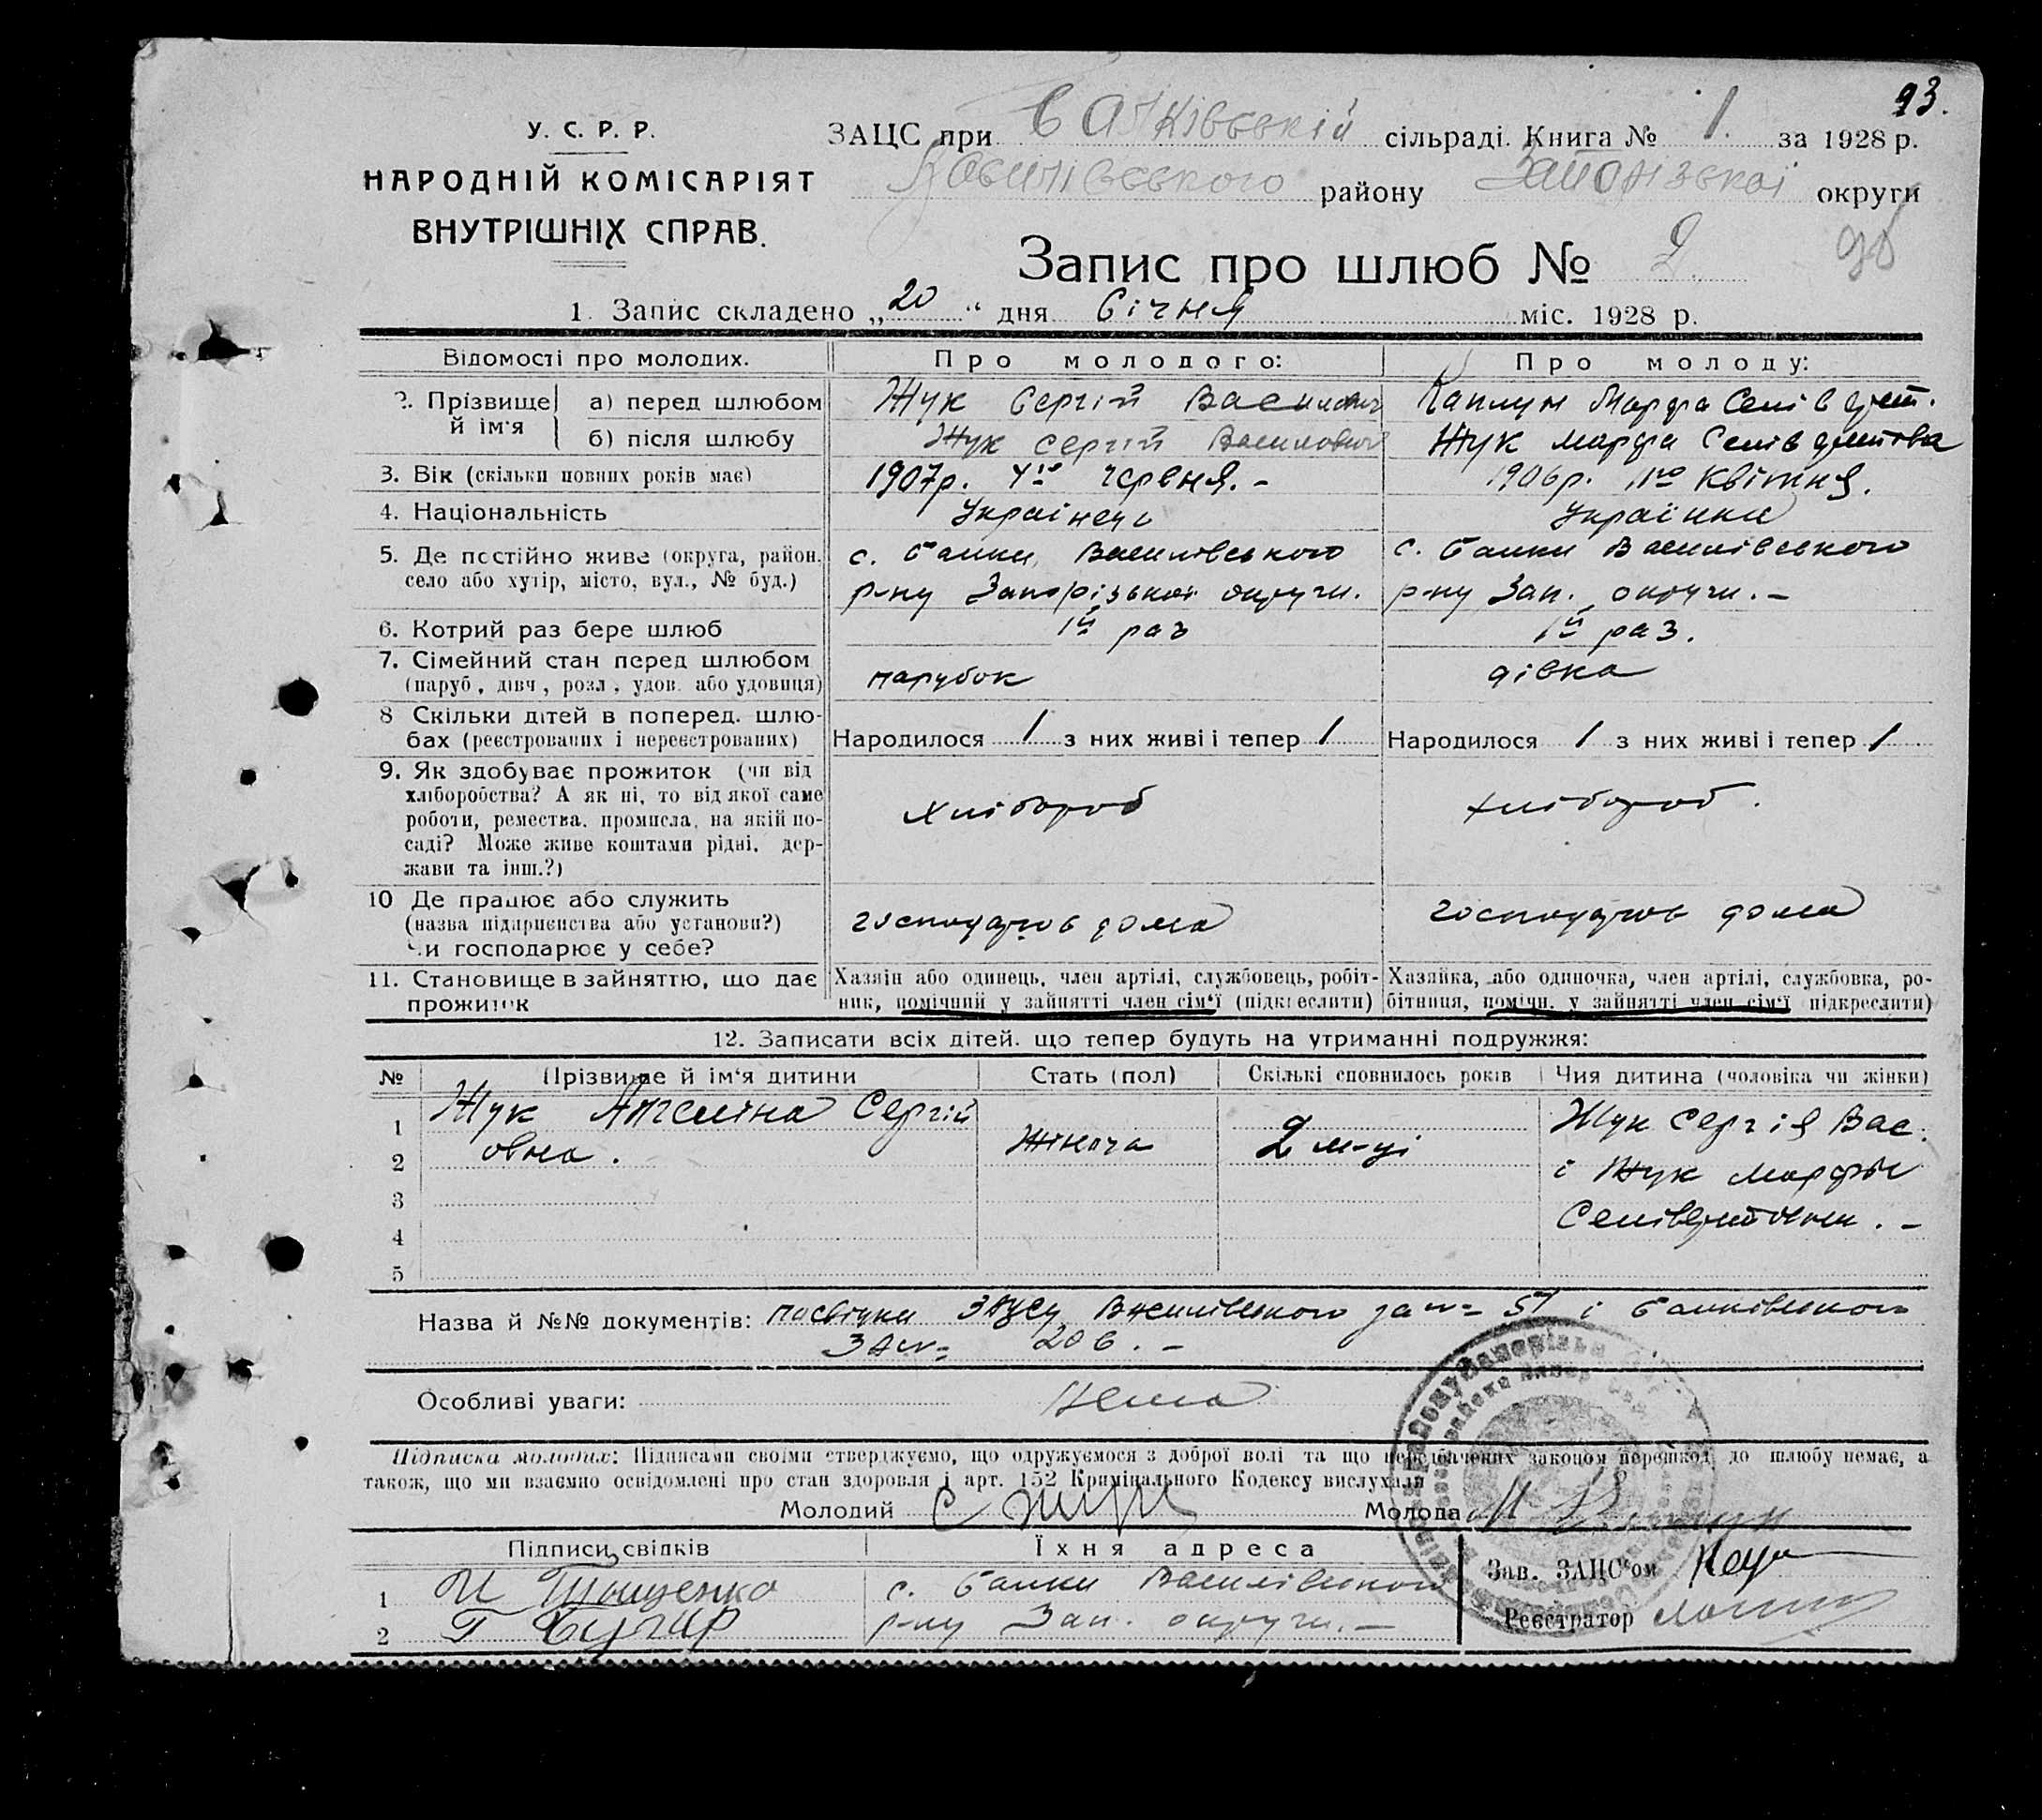 93.
У. С. Р. Р.
НАРОДНІЙ КОМІСАРІЯТ
ВНУТРІШНІХ СПРАВ.
ЗАЦС при Балківській сільраді. Книга № 1. за 1928 р.
Василівського району Запорізької округи
Запис про шлюб № 2.
1. Запис складено „20“ дня Січня міс. 1928 р.
Відомості про молодих. Про молодого: Про молоду:
2. Прізвище й ім'я а) перед шлюбом Жук Сергій Василович Каплун Марфа Селіверст.
б) після шлюбу Жук Сергій Василович Жук Марфа Селіверстова
3. Вік (скільки повних років має) 1907р. 4го Червня. - 1906р. 1го Квітня.
4. Національність Українець Українка
5. Де постійно живе (округа, район, с. Балки, Василівського с. Балки Василівського
село або хутір, місто, вул., № буд.) р-ну Запорізької округи. р-ну Зап. округи. -
6. Котрий раз бере шлюб 1й раз 1й раз.
7. Сімейний стан перед шлюбом
(паруб., дівч., розл., удов. або удовиця) парубок дівка
8 Скільки дітей в поперед. шлю-
бах (реєстрованих і нереєстрованих) Народилося 1 з них живі і тепер 1 Народилося 1 з них живі і тепер 1
9. Як здобуває прожиток (чи від
хліборобства? А як ні, то від якої саме хлібороб хлібороб.
роботи, ремества, промисла, на якій по-
саді? Може живе коштами рідні, дер-
жави та інш.?)
10 Де працює або служить
(назва підприємства або установи?) господарюв дома господарюв дома
Чи господарює у себе?
11. Становище в зайняттю, що дає Хазяїн або одинець, член артілі, службовець, робіт- Хазяйка, або одиночка, член артілі, службовка, ро-
прожиток ник, помічний у зайнятті член сім'ї (підкреслити) бітниця, помічн. у зайнятті член сім'ї підкреслити)
12. Записати всіх дітей, що тепер будуть на утриманні подружжя:
№ Прізвище й ім'я дитини Стать (пол) Скількі сповнилось років Чия дитина (чоловіка чи жінки)
1 Жук Ангеліна Сергій Жук Сергія Вас.
2 овна. Жіноча 2 м-ці і Жук Марфи
3 Селіверстовни. -
4
5
Назва й №№ документів: посвідки ЗАЦСу Василівського за № 51 і Балківського
за № 206. -
Особливі уваги: Нема
Підписка молодих: Підписами своїми стверджуємо, що одружуємося з доброї волі та що передбачених законом перешкод до шлюбу немає, а
також, що ми взаємно освідомлені про стан здоровля і арт. 152 Кримінального Кодексу вислухали
Молодий С Жук Молода М Каплун
Підписи свідків Їхня адреса Зав. ЗАЦС'ом
1 И Тищенко с. Балки Василівського
2 Г Бугар р-ну Зап. округи. - Реєстратор